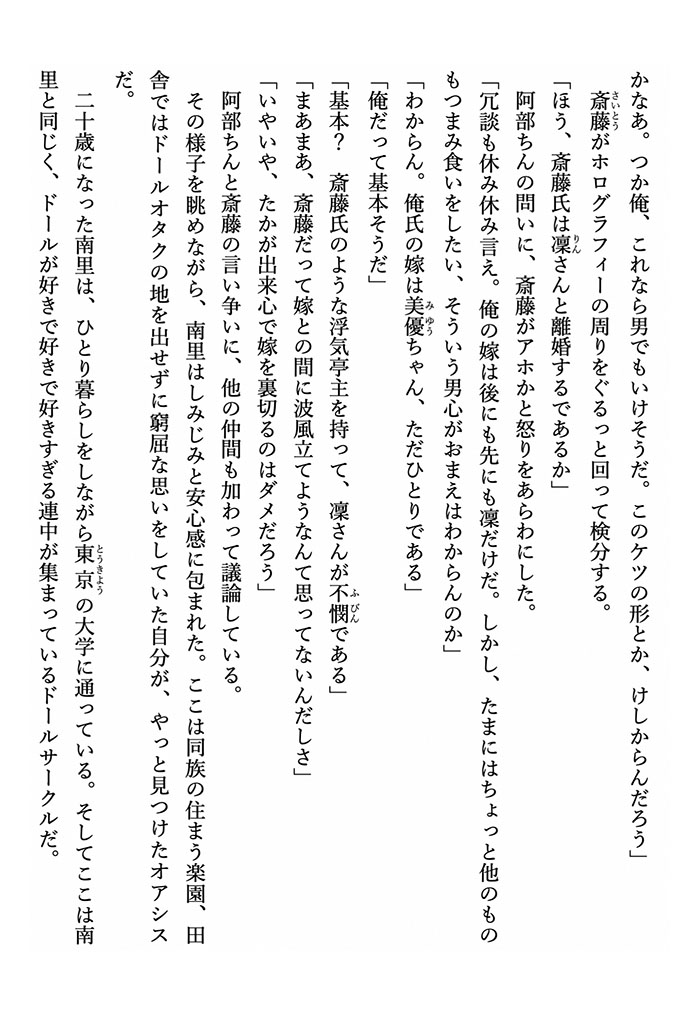 かなあ。つか俺、これなら男でもいけそうだ。このケツの形とか、けしからんだろう」
斎藤がホログラフィーの周りをぐるっと回って検分する。
「ほう、斎藤氏は凜さんと離婚するであるか」
阿部ちんの問いに、斎藤がアホかと怒りをあらわにした。
「冗談も休み休み言え。俺の嫁は後にも先にも凜だけだ。しかし、たまにはちょっと他のもの
もつまみ食いをしたい、そういう男心がおまえはわからんのか」
「わからん。俺氏の嫁は美優ちゃん、ただひとりである」
「俺だって基本そうだ」
「基本？　斎藤氏のような浮気亭主を持って、凜さんが不憫である」
「まあまあ、斎藤だって嫁との間に波風立てようなんて思ってないんだしさ」
「いやいや、たかが出来心で嫁を裏切るのはダメだろう」
阿部ちんと斎藤の言い争いに、他の仲間も加わって議論している。
その様子を眺めながら、南里はしみじみと安心感に包まれた。ここは同族の住まう楽園、田
舎ではドールオタクの地を出せずに窮屈な思いをしていた自分が、やっと見つけたオアシス
だ。
二十歳になった南里は、ひとり暮らしをしながら東京の大学に通っている。そしてここは南
里と同じく、ドールが好きで好きで好きすぎる連中が集まっているドールサークルだ。